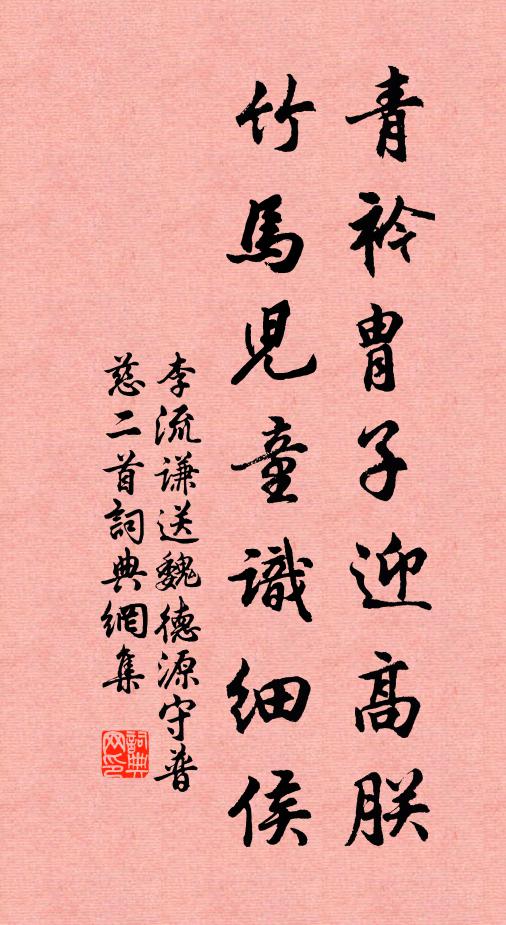 青衿胄子迎高朕
竹馬兒童識細侯
李流谦送魏德源守普
慈二首詞典網集
詞典网印